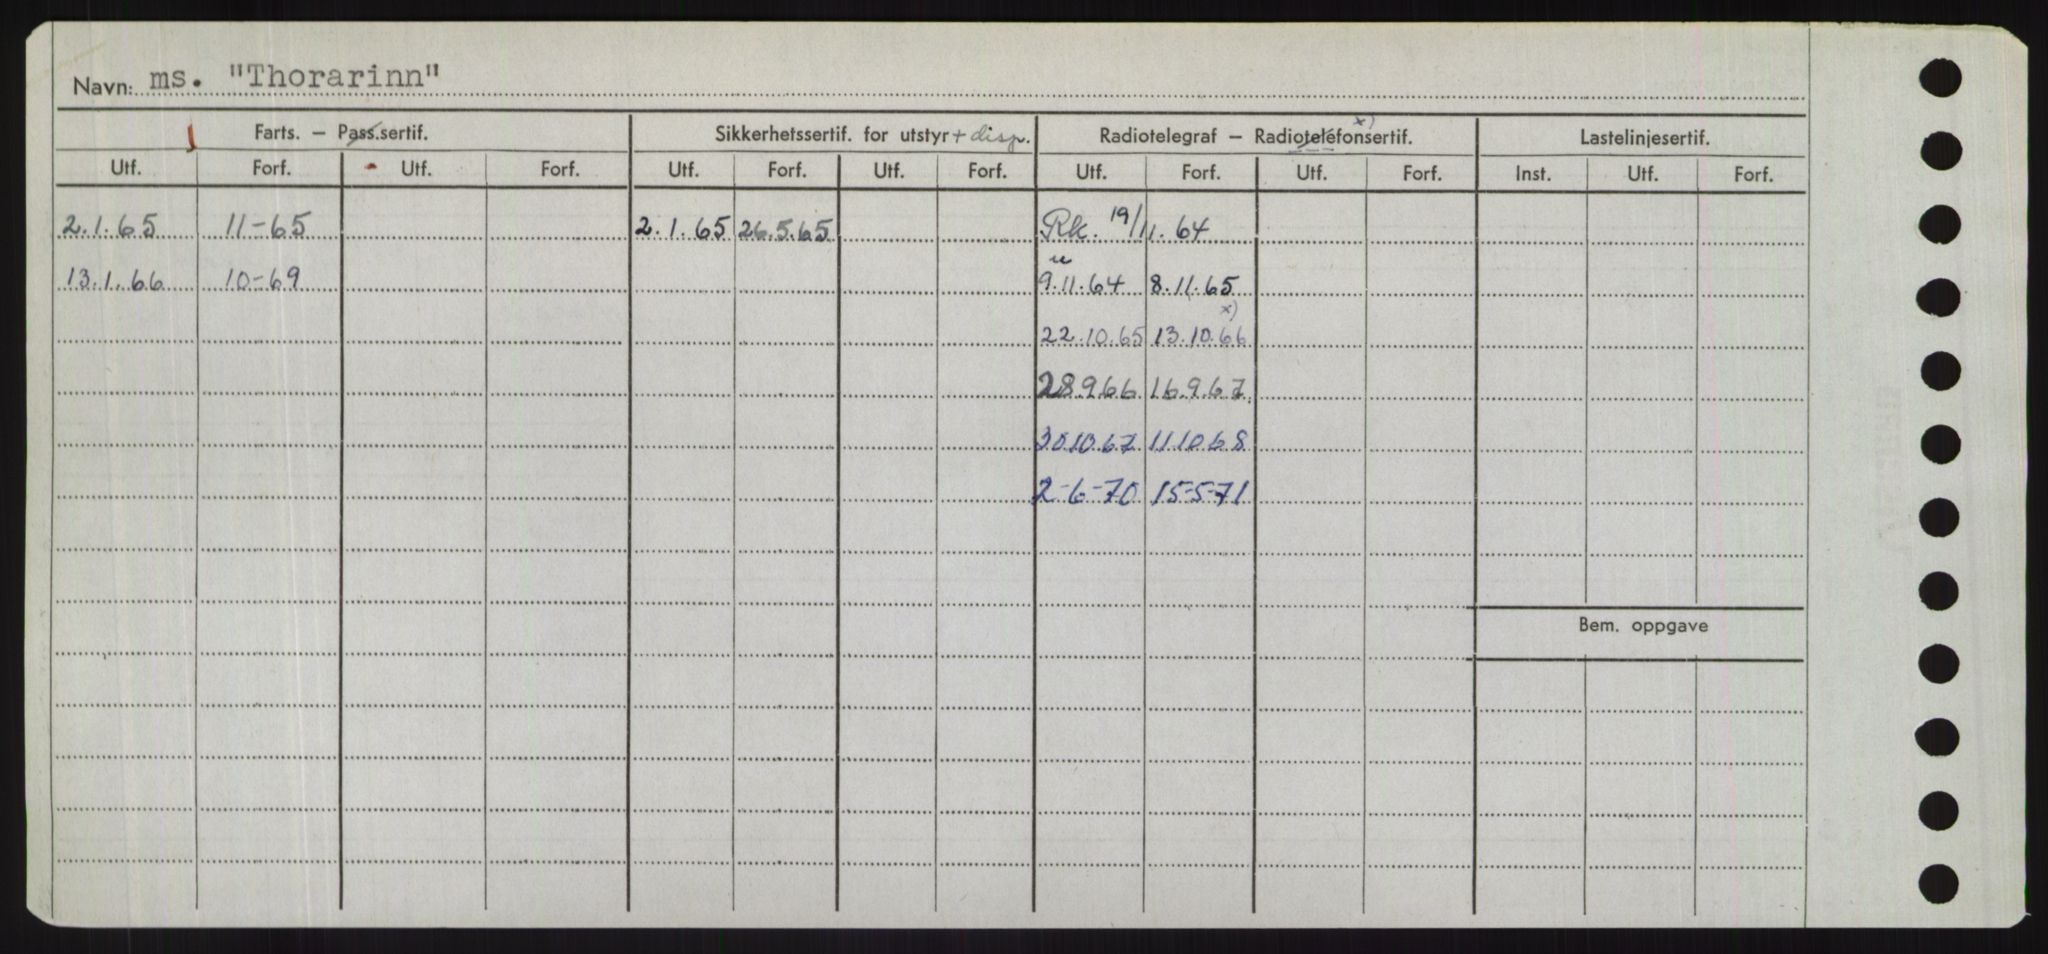 Navn: ms. "Thorarinn"
Farts. – Pass.sertif. Sikkerhetssertif. for utstyr + disp. Radiotelegraf – Radiotelefonsertif. x) Lastelinjesertif.
Utf. Forf. Utf. Forf. Utf. Forf. Utf. Forf. Utf. Forf. Utf. Forf. Inst. Utf. Forf.
2.1.65 11-65 2.1.65 26.5.65 Rk. 19/11.64
13.1.66 10-69 9.11.64 8.11.65
22.10.65 13.10.66 x)
28.9.66 16.9.67
30.10.67 11.10.68
2-6-70 15-5-71
Bem. oppgave